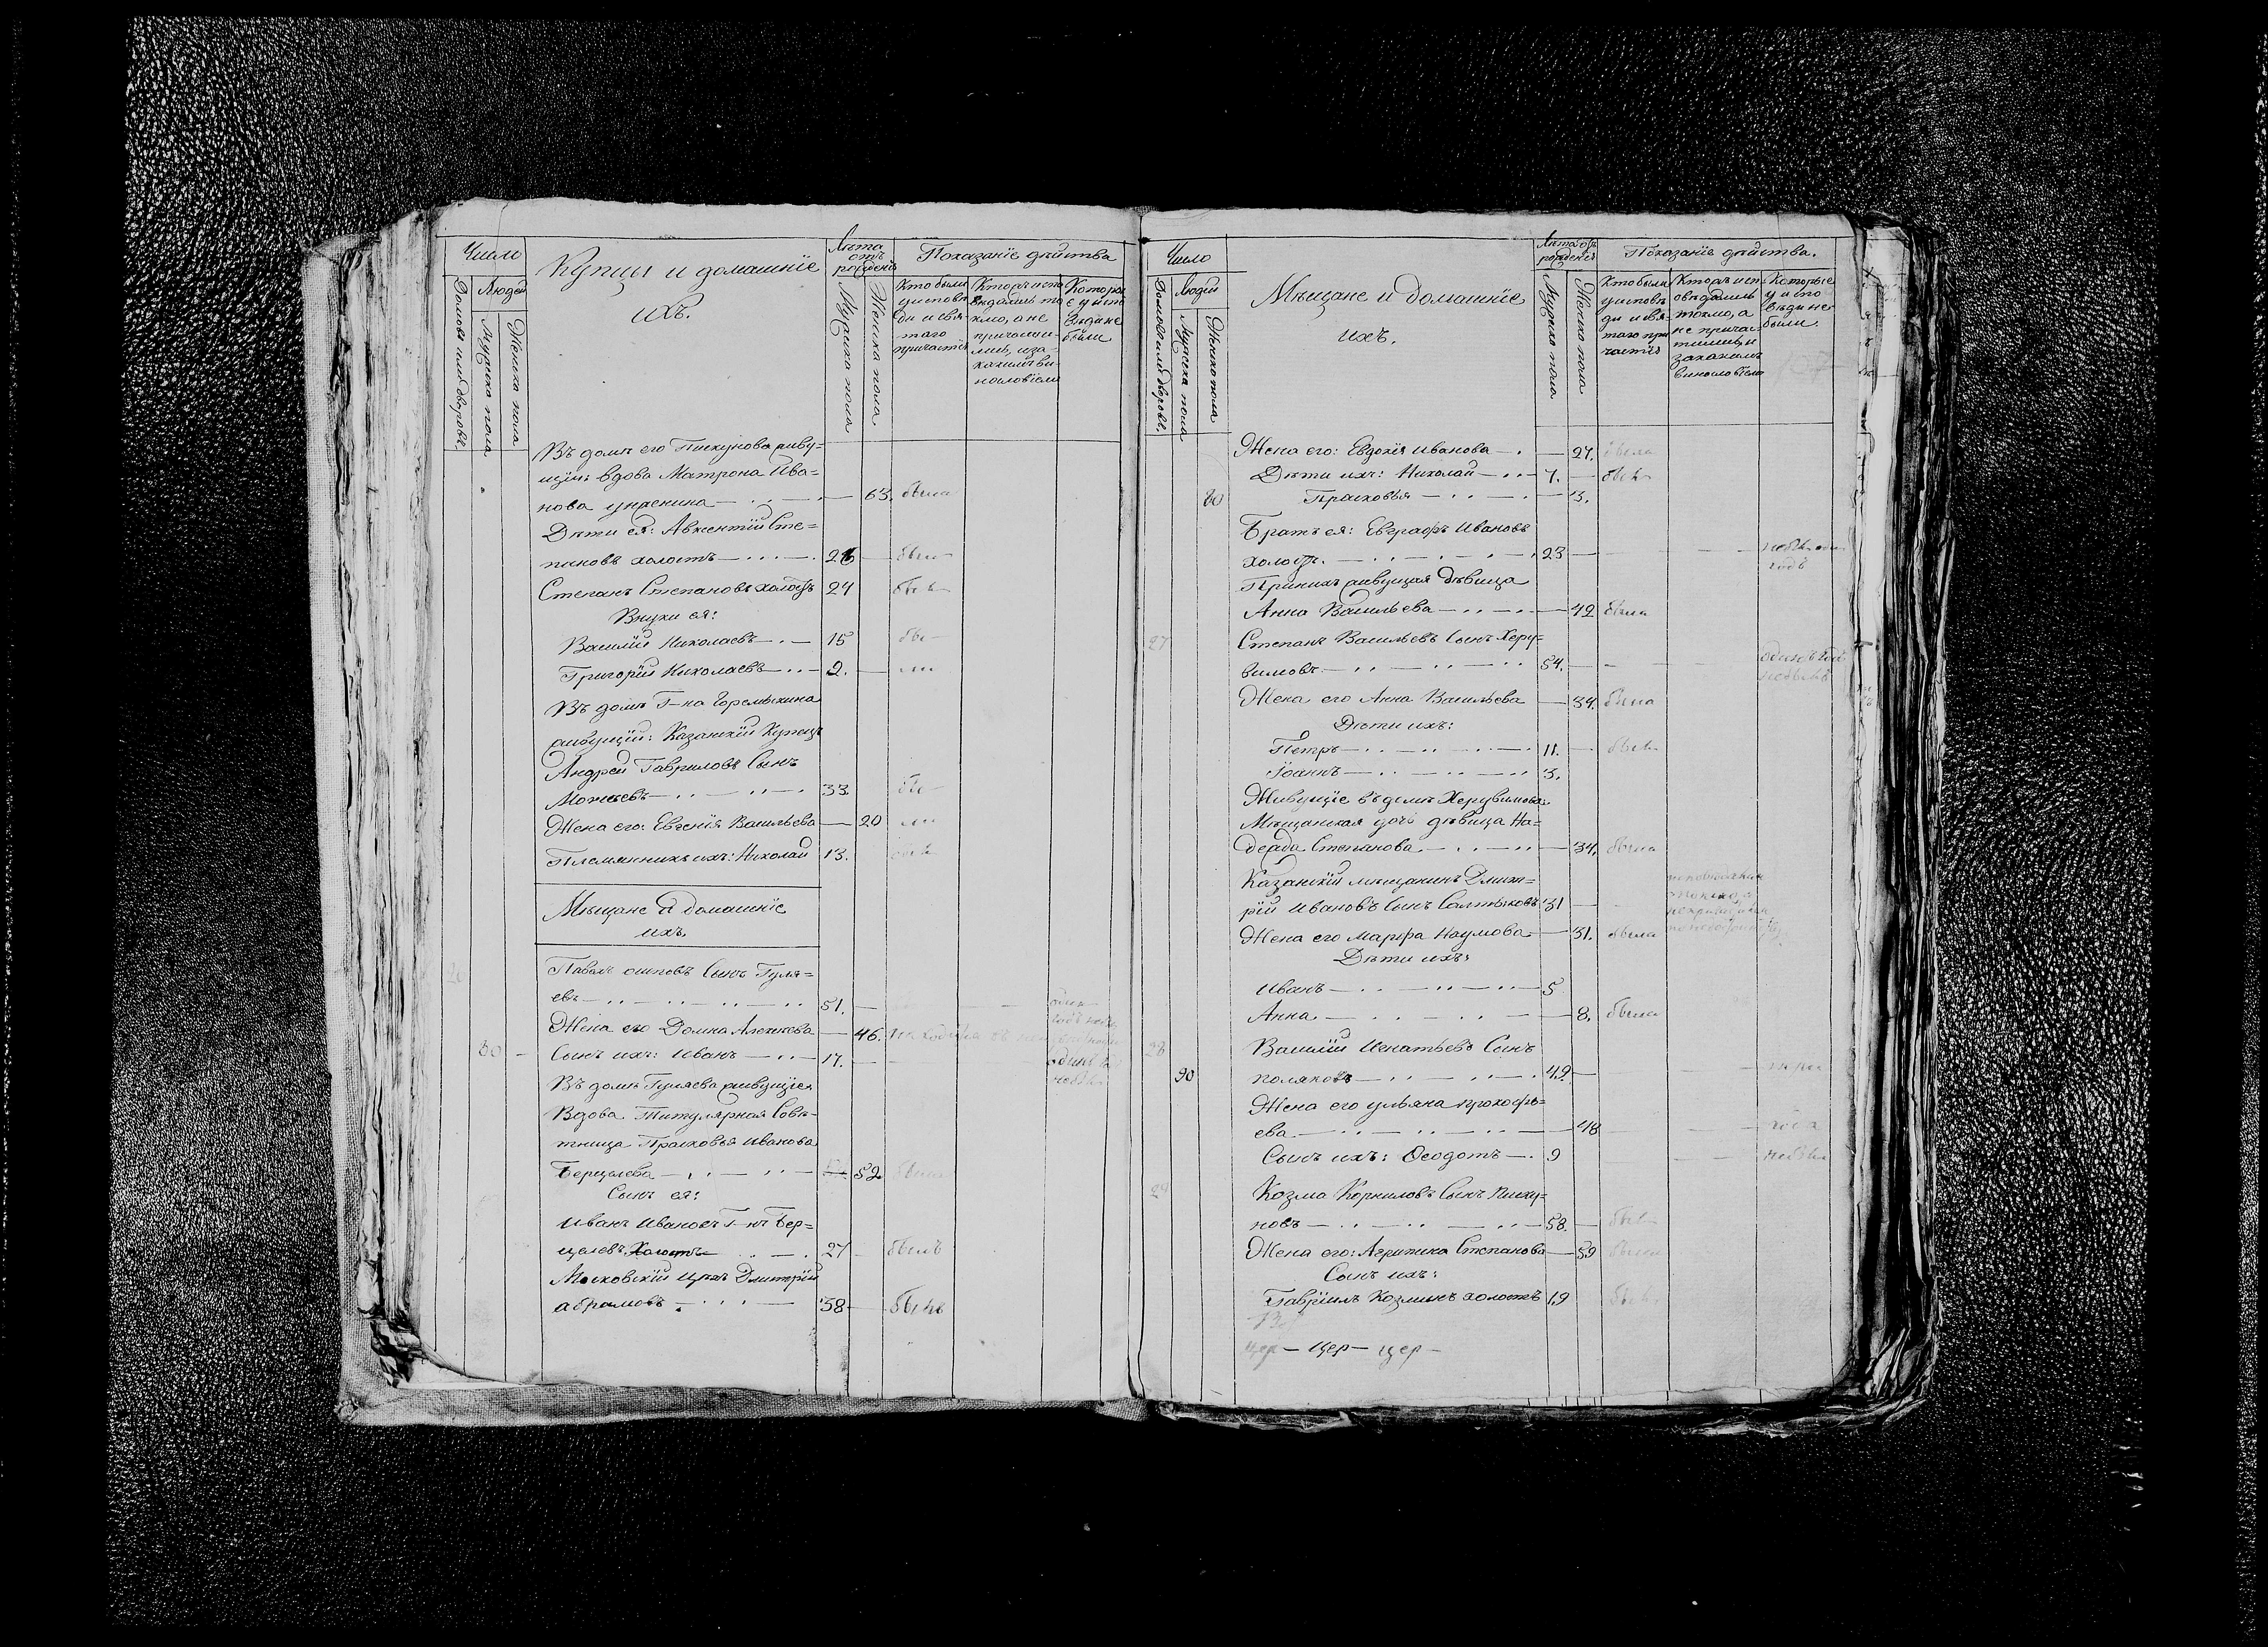 Число
Купцы и домашніе
ихъ.
Лѣта
отъ
рожденія
Показаніе дѣйства
Домовъ или дворовъ.
Людей
Мужеска пола
Женска пола
Мужска пола
Женска пола
Кто были
у исповѣ-
ди и свя-
таго
причастія
Въ домѣ его Пискунова живу=
щіи вдова Матрона Ива=
нова — 63. была
Дѣти ея: Авксентій Сте=
пановъ холостъ — 26 —
Степанъ Степановъ холостъ 24 былъ
Внуки ея:
Василій Николаевъ — 15
Григорій Николаевъ — 2. —
Въ домѣ Г-на Горемыкина
живущій: Казанскій Купецъ
Андрей Гавриловъ Сынъ
33.
Жена его: Евгенія Васильева — 20
Племянникъ ихъ: Николай 13. былъ
Мѣщане и домашніе
ихъ.
Павелъ осиповъ Сынъ Гуля=
евъ — 51. —
Жена его Домна Алексѣева — 46.
80 — Сынъ ихъ: Иванъ — 17. —
Въ домѣ Гуляева живущіе
Вдова Титулярная Совѣ-
тница Прасковья Иванова
Берцелева — 52 была
Сынъ ея:
Иванъ Ивановъ Г-нъ Бер=
целевъ Холостъ — 27 — былъ
Московскій Дмитрій
абрамовъ — 38 — былъ
Число
Мѣщане и домашніе
ихъ.
Лѣта отъ
рожденія
Показаніе дѣйства.
Домовъ или дворовъ.
Людей
Мужеска пола
Женска пола
Мужска пола
Женска пола
Кто были
у исповѣ-
ди и свя-
таго при-
частія
Кторые исп-
овѣдались
токмо, а
не прича-
тились, и
закакимъ
винословіемъ
Которые
у испо
вѣди не
были.
Жена его: Евдокія Иванова — 27. была
Дѣти ихъ: Николай — 7. — былъ
80 Прасковья — 3.
Братъ ея: Евграфъ Ивановъ
холостъ. — 23 —
При нихъ живущая дѣвица
Анна Васильева — 42 была
27 Степанъ Васильевъ Сынъ Херу=
вимовъ — 54. —
Жена его Анна Васильева — 34. была
Дѣти ихъ:
Петръ — 11. — былъ
Іоаннъ — 3.
Живущіе въ домѣ Херувимова:
Мѣщанская дочь дѣвица На=
дежда Степанова — 34. была
Казанскій мѣщанинъ Дмит=
рій Ивановъ Сынъ Салтыковъ 31 —
Жена его Марфа Наумова — 31. была
Дѣти ихъ:
Иванъ — 5
Анна — 8. была
28 Василій Игнатьевъ Сынъ
90 поляковъ — 49. —
Жена его ульяна прокофь=
ева — 48
Сынъ ихъ: Ѳеодотъ — 9
29 Козма Корниловъ Сынъ Писку=
новъ — 58. — былъ
Жена его: Агрипина Степанова — 59 была
Сынъ ихъ:
Гавріилъ Козминъ холостъ 19 былъ
цер — цер — цер —